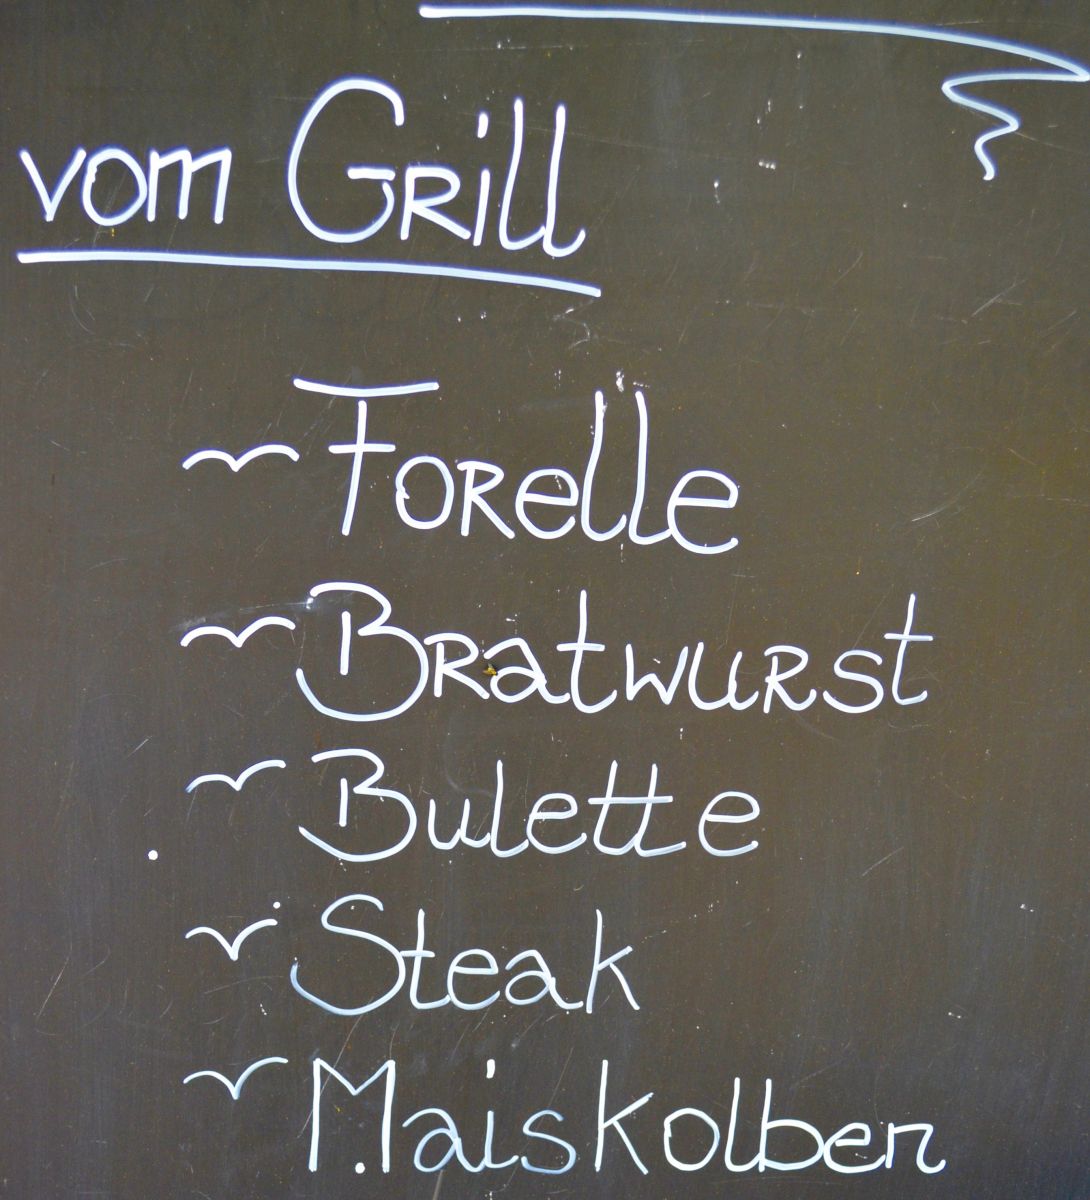 vom Grill
Forelle
Bratwurst
Bulette
Steak
Maiskolben